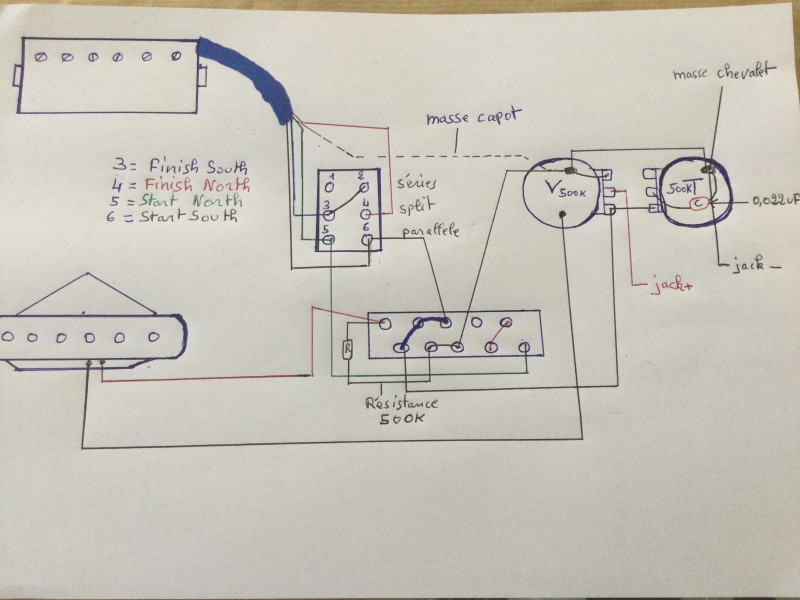 masse chevalet
masse capot
3 = Finish South
4 = Finish North
5 = Start North
6 = Start South
1 2
3 4
5 6
séries
split
parallele
V 500K
500K T
C
0,022uF
jack+
jack -
R
Résistance
500K